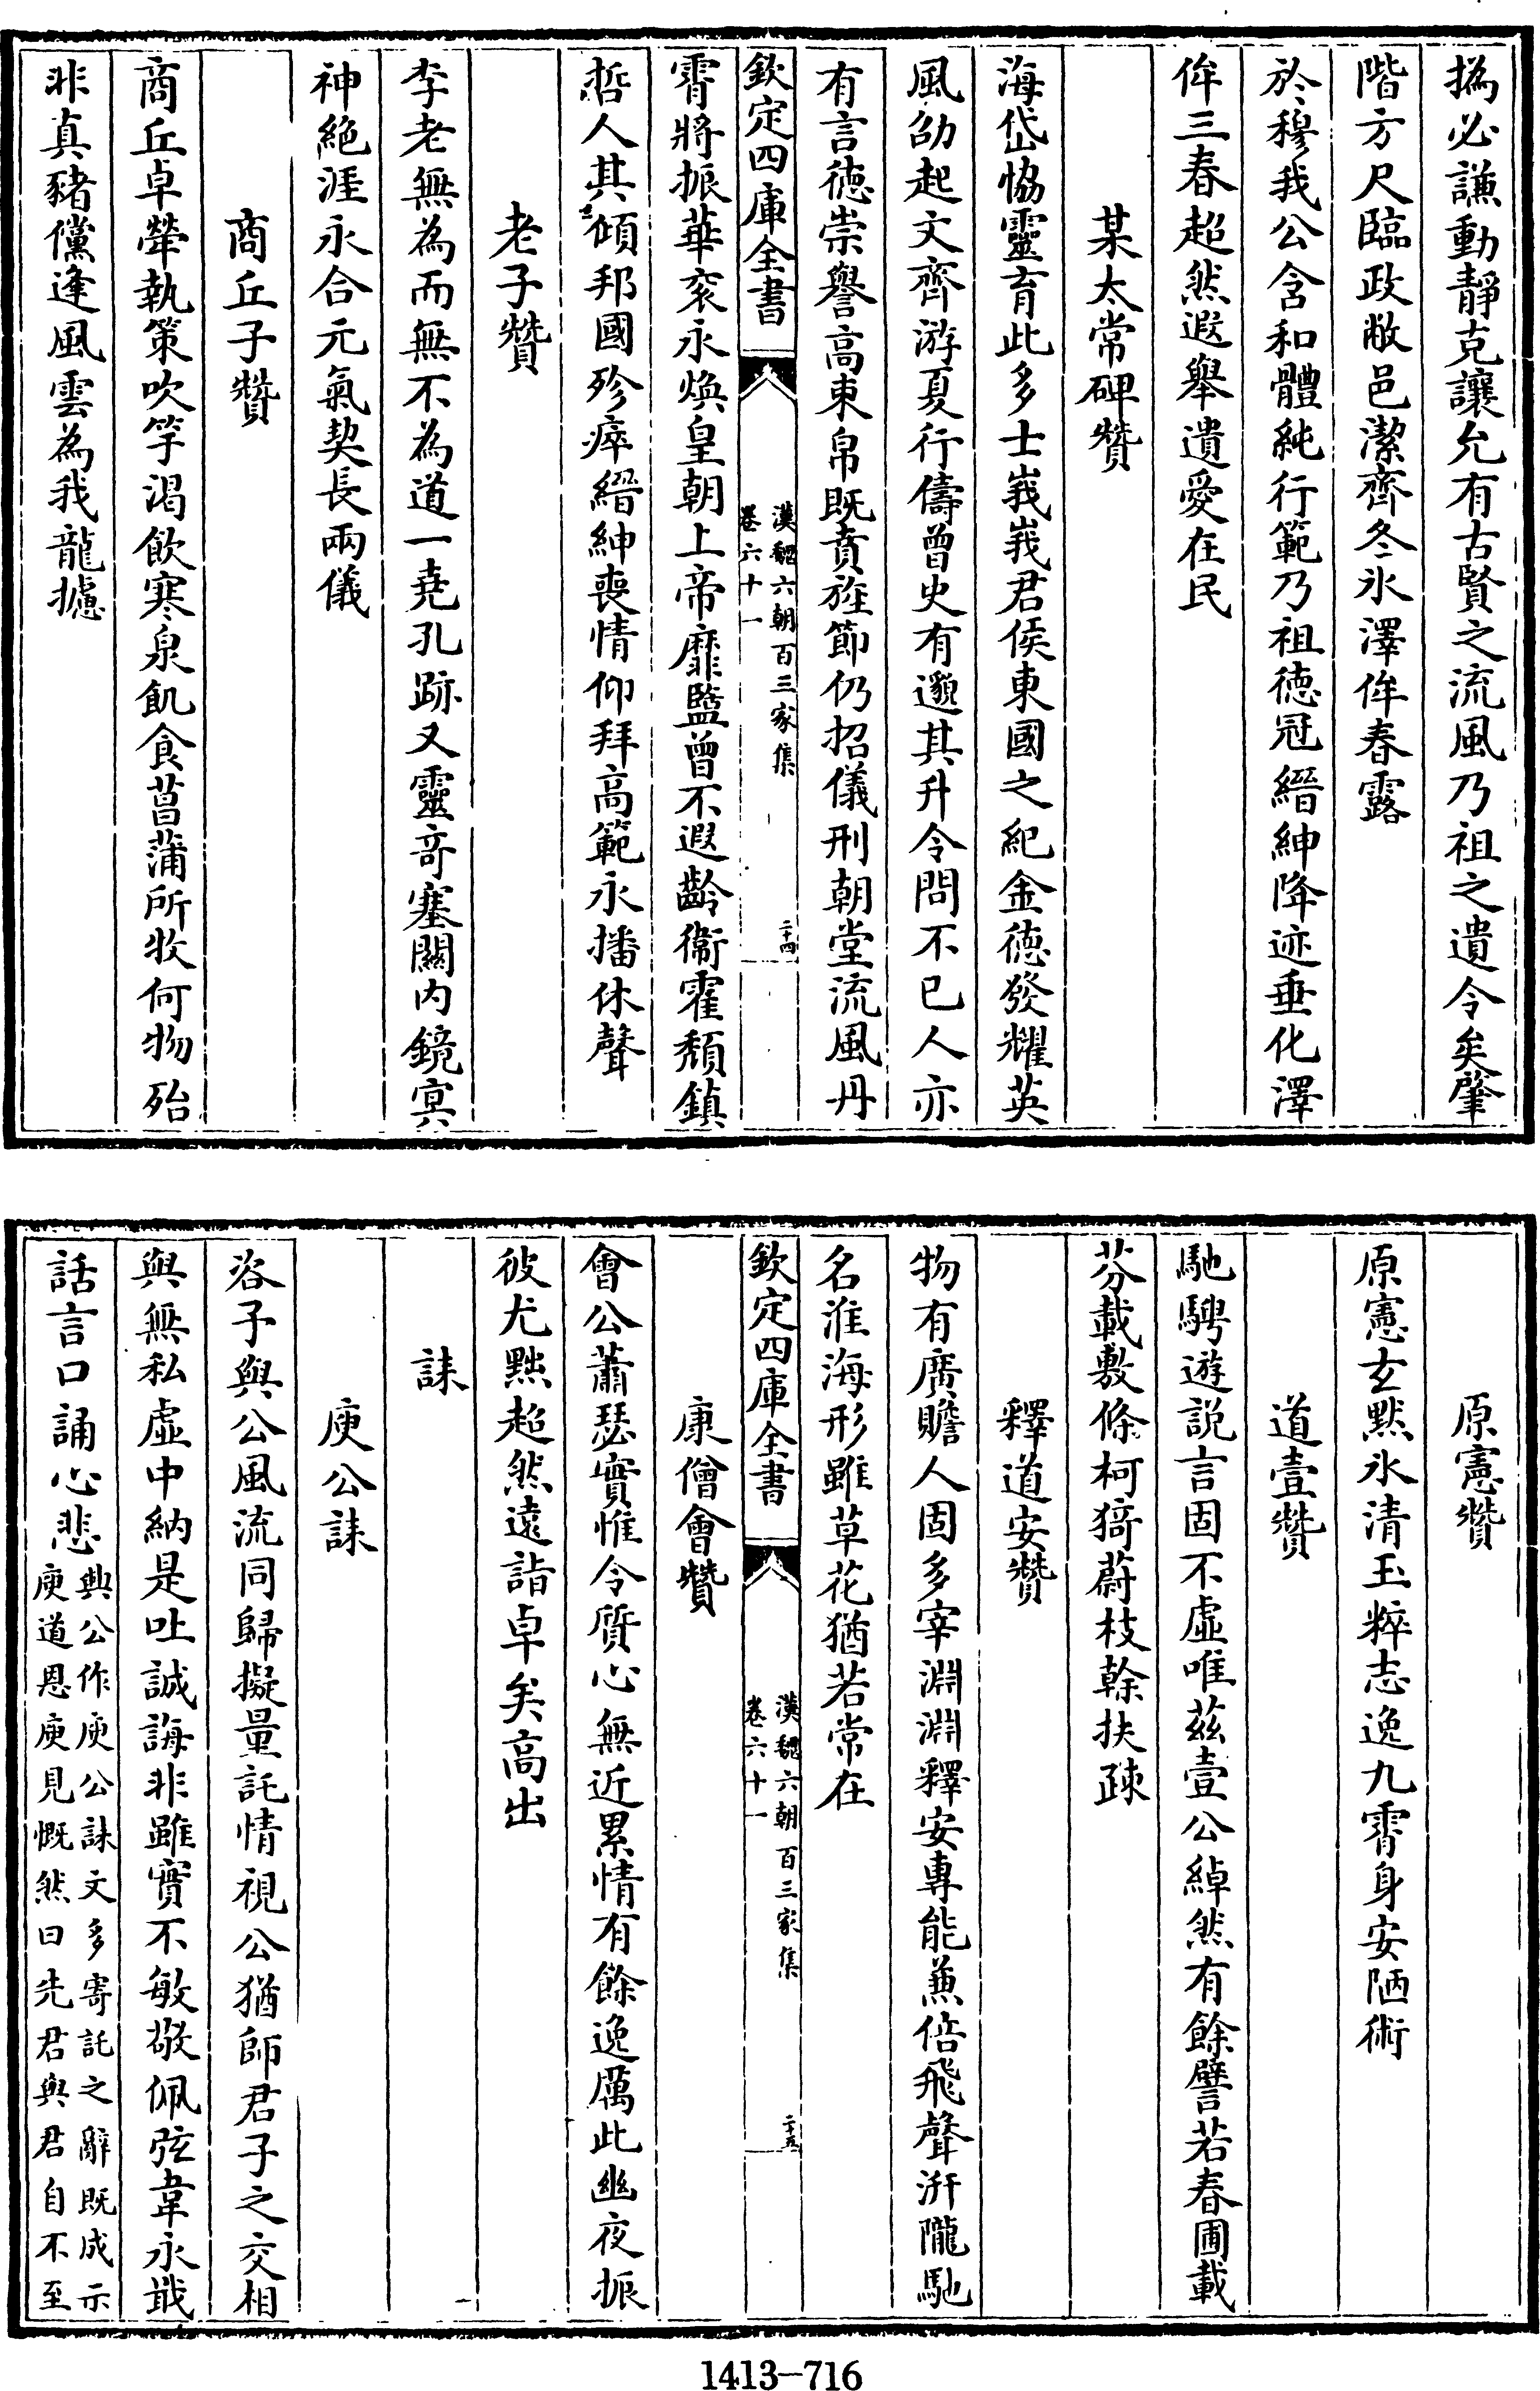 撝必謙動靜克讓允有古賢之流風乃祖之遺令矣肇
階方尺臨政敝邑潔齊冬氷澤侔春露
於穆我公含和體純行範乃祖徳冠縉紳降迹垂化澤
侔三春超然遐舉遺愛在民
某太常碑贊
海岱恊靈育此多士峩峩君侯東國之紀金徳發耀英
風劭起文齊游夏行儔曾史有邈其升令問不已人亦
有言徳崇譽高束帛既賁旌節仍招儀刑朝堂流風丹
欽定四庫全書
漢魏六朝百三家集
卷六十一
二十四
霄將振華衮永煥皇朝上帝靡監曾不遐齡衞霍頽鎮
哲人其傾邦國殄瘁縉紳喪情仰拜高範永播休聲
老子贊
李老無為而無不為道一堯孔跡又靈奇塞關内鏡㝠
神絶涯永合元氣契長兩儀
商丘子贊
商丘卓犖執策吹竽渴飲寒泉飢食菖蒲所牧何物殆
非真豬儻逢風雲為我龍攄
原憲贊
原憲玄黙氷清玉粹志逸九霄身安陋術
道壹贊
馳騁遊説言固不虚唯茲壹公綽然有餘譬若春圃載
芬載敷條柯猗蔚枝榦扶疎
釋道安贊
物有廣贍人固多宰淵淵釋安專能兼倍飛聲汧隴馳
名淮海形雖草花猶若常在
欽定四庫全書
漢魏六朝百三家集
卷六十一
二十五
康僧會贊
會公蕭瑟實惟令質心無近累情有餘逸厲此幽夜振
彼尤黜超然遠詣卓矣高出
誄
庾公誄
咨予與公風流同歸擬量託情視公猶師君子之交相
與無私虚中納是吐誠誨非雖實不敏敬佩弦韋永戢
話言口誦心悲
興公作庾公誄文多寄託之辭既成示
庾道恩庾見慨然曰先君與君自不至
1413-716